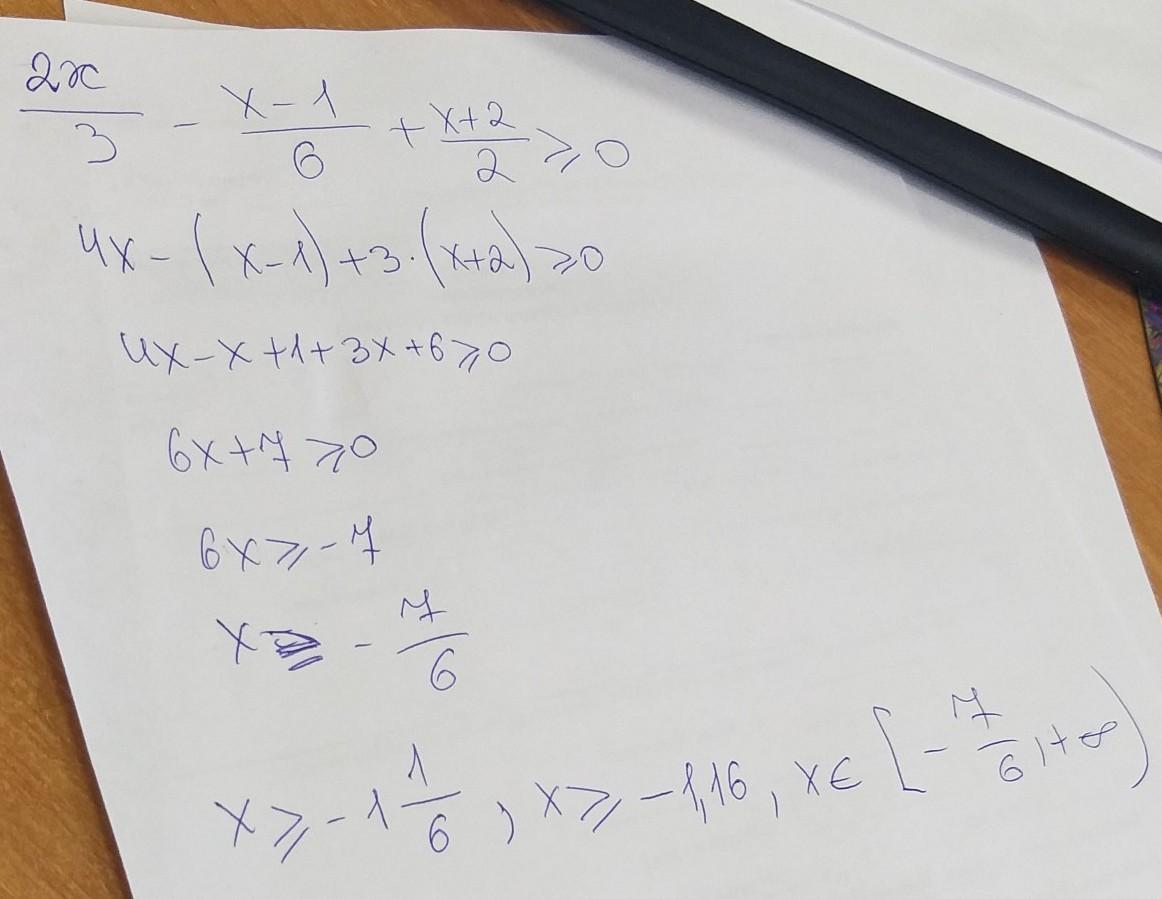 2x/3 - x-1/6 + x+2/2 ⩾ 0
4x - (x-1) + 3·(x+2) ⩾ 0
4x - x + 1 + 3x + 6 ⩾ 0
6x + 7 ⩾ 0
6x ⩾ -7
x ⩾ - 7/6
x ⩾ -1 1/6 , x ⩾ -1,16 , x ∈ [- 7/6 , +∞)